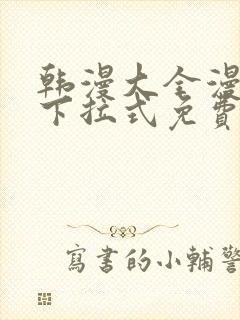 韩漫大全漫
下拉式免费
寫書的小輔警